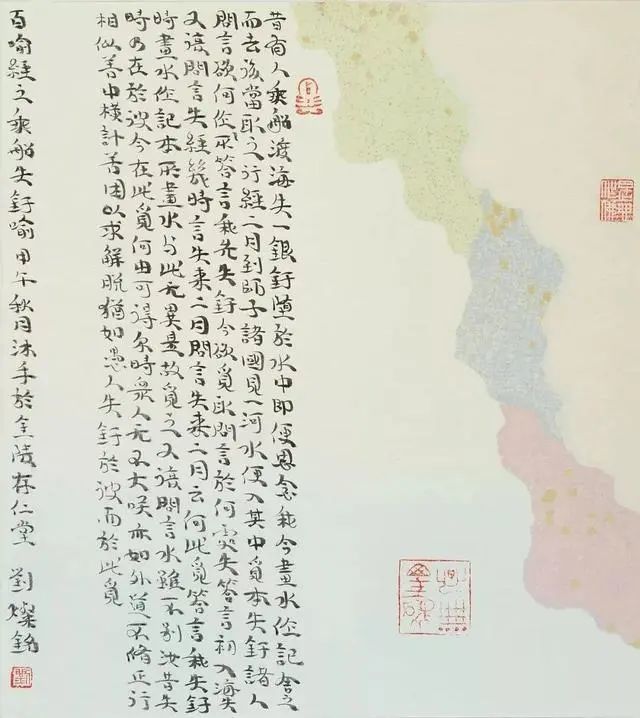 昔有人乘船渡海失一銀釪墮於水中即便思念我今畫水作記舍之
而去後當取之行經二月到師子諸國見一河水便入其中覓本失釪諸人
問言欲何作所答言我先失釪今欲覓取問言於何處失答言初入海失
又復問言失經幾時言失來二月問言失來二月云何此覓答言我失釪
時畫水作記本所畫水与此无異是故覓之又復問言水雖不別汝昔失
時乃在於彼今在此覓何由可得尔時眾人无不大咲亦如外道不修正行
相似善中橫計苦困以求解脫猶如愚人失釪於彼而於此覓
百喻經之乘船失釪喻 甲午秋月沐手於金陵存仁堂 劉燦銘